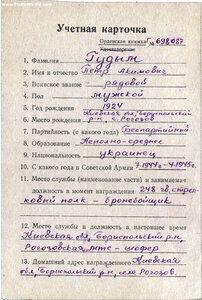 Учетная карточка
Орденская книжка № 698087
1. Фамилия Гудым
2. Имя и отчество Петр Якимович
3. Воинское звание рядовой
4. Пол мужской
5. Год рождения 1924
6. Место рождения Киевская обл, Бориспольский
р-н, с. Рогозов
7. Партийность (с какого года) беспартийный
8. Образование Неполно-среднее
9. Национальность украинец
10. С какого года в Советской Армии 1944г - 4.1945г.
11. Место службы (наименование части) и занимаемая
должность в момент награждения 248 гв. стрел
ковый полк - бронебойщик
12. Место службы и должность в настоящее время
Киевская обл, Бориспольский р-н,
Рогозовская мтс - шофер
13. Домашний адрес награжденного Киевская
обл, Бориспольский р-н, село Рогозов.